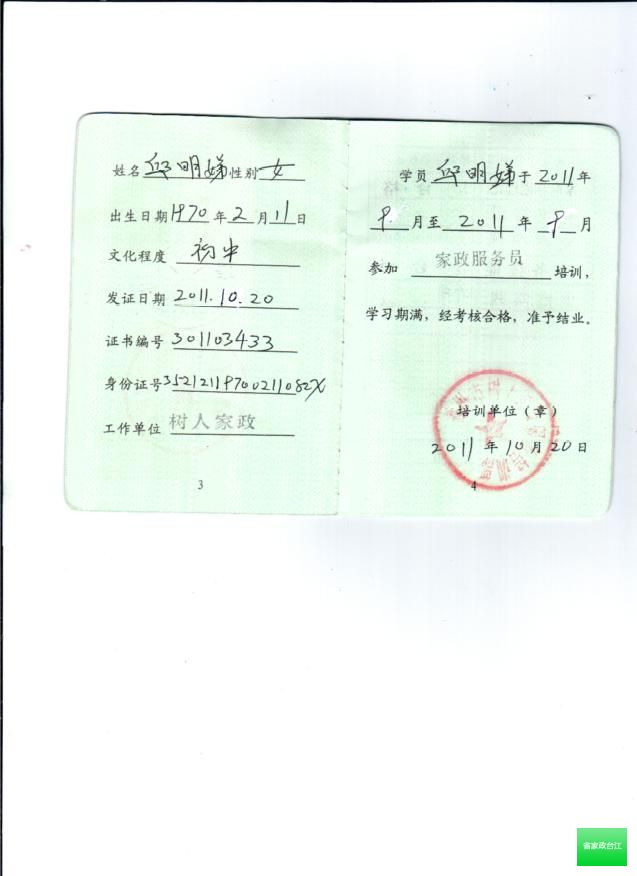 姓名 邱明娣 性别 女
出生日期 1970 年 2 月 11 日
文化程度 初中
发证日期 2011.10.20
证书编号 301103433
身份证号 35212119700211082X
工作单位 树人家政
3
学员 邱明娣 于 2011 年
9 月至 2011 年 9 月
参加 家政服务员 培训，
学习期满，经考核合格，准予结业。
培训单位（章）
2011 年 10 月 20 日
4
省家政台江